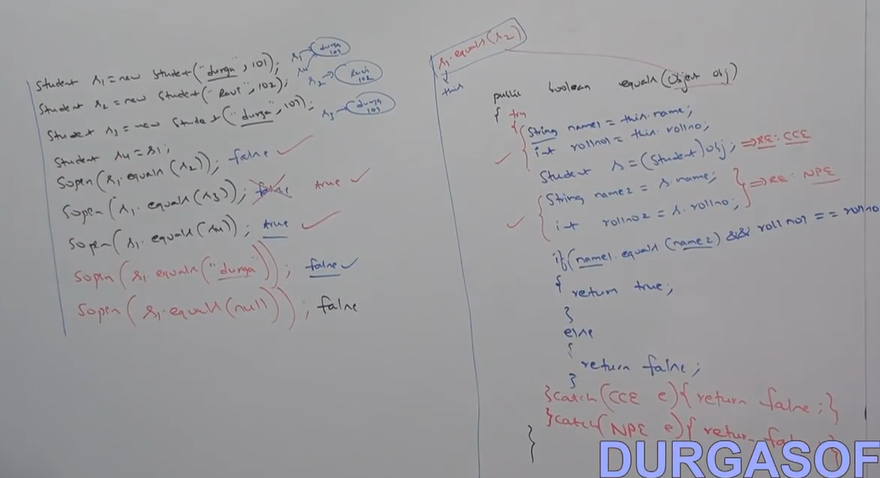 Student s1 = new Student("durga", 101);
Student s2 = new Student("Ravi", 102);
Student s3 = new Student("durga", 101);
Student s4 = s1;
Sopln(s1.equals(s2)); false
Sopln(s1.equals(s3)); false true
Sopln(s1.equals(s4)); true
Sopln(s1.equals("durga")); false
Sopln(s1.equals(null)); false
s1 → durga 101
s4
s2 → Ravi 102
s3 → durga 101
s1.equals(s2)
this
public boolean equals(Object obj)
{ try
{ String name1 = this.name;
int rollno1 = this.rollno;
Student s = (Student)obj; ⇒ RE: CCE
String name2 = s.name;
int rollno2 = s.rollno; } ⇒ RE: NPE
if(name1.equals(name2) && rollno1 == rollno
{
return true;
}
else
{
return false;
}
}catch(CCE e){ return false; }
}catch(NPE e){ return false; }
}
DURGASOF